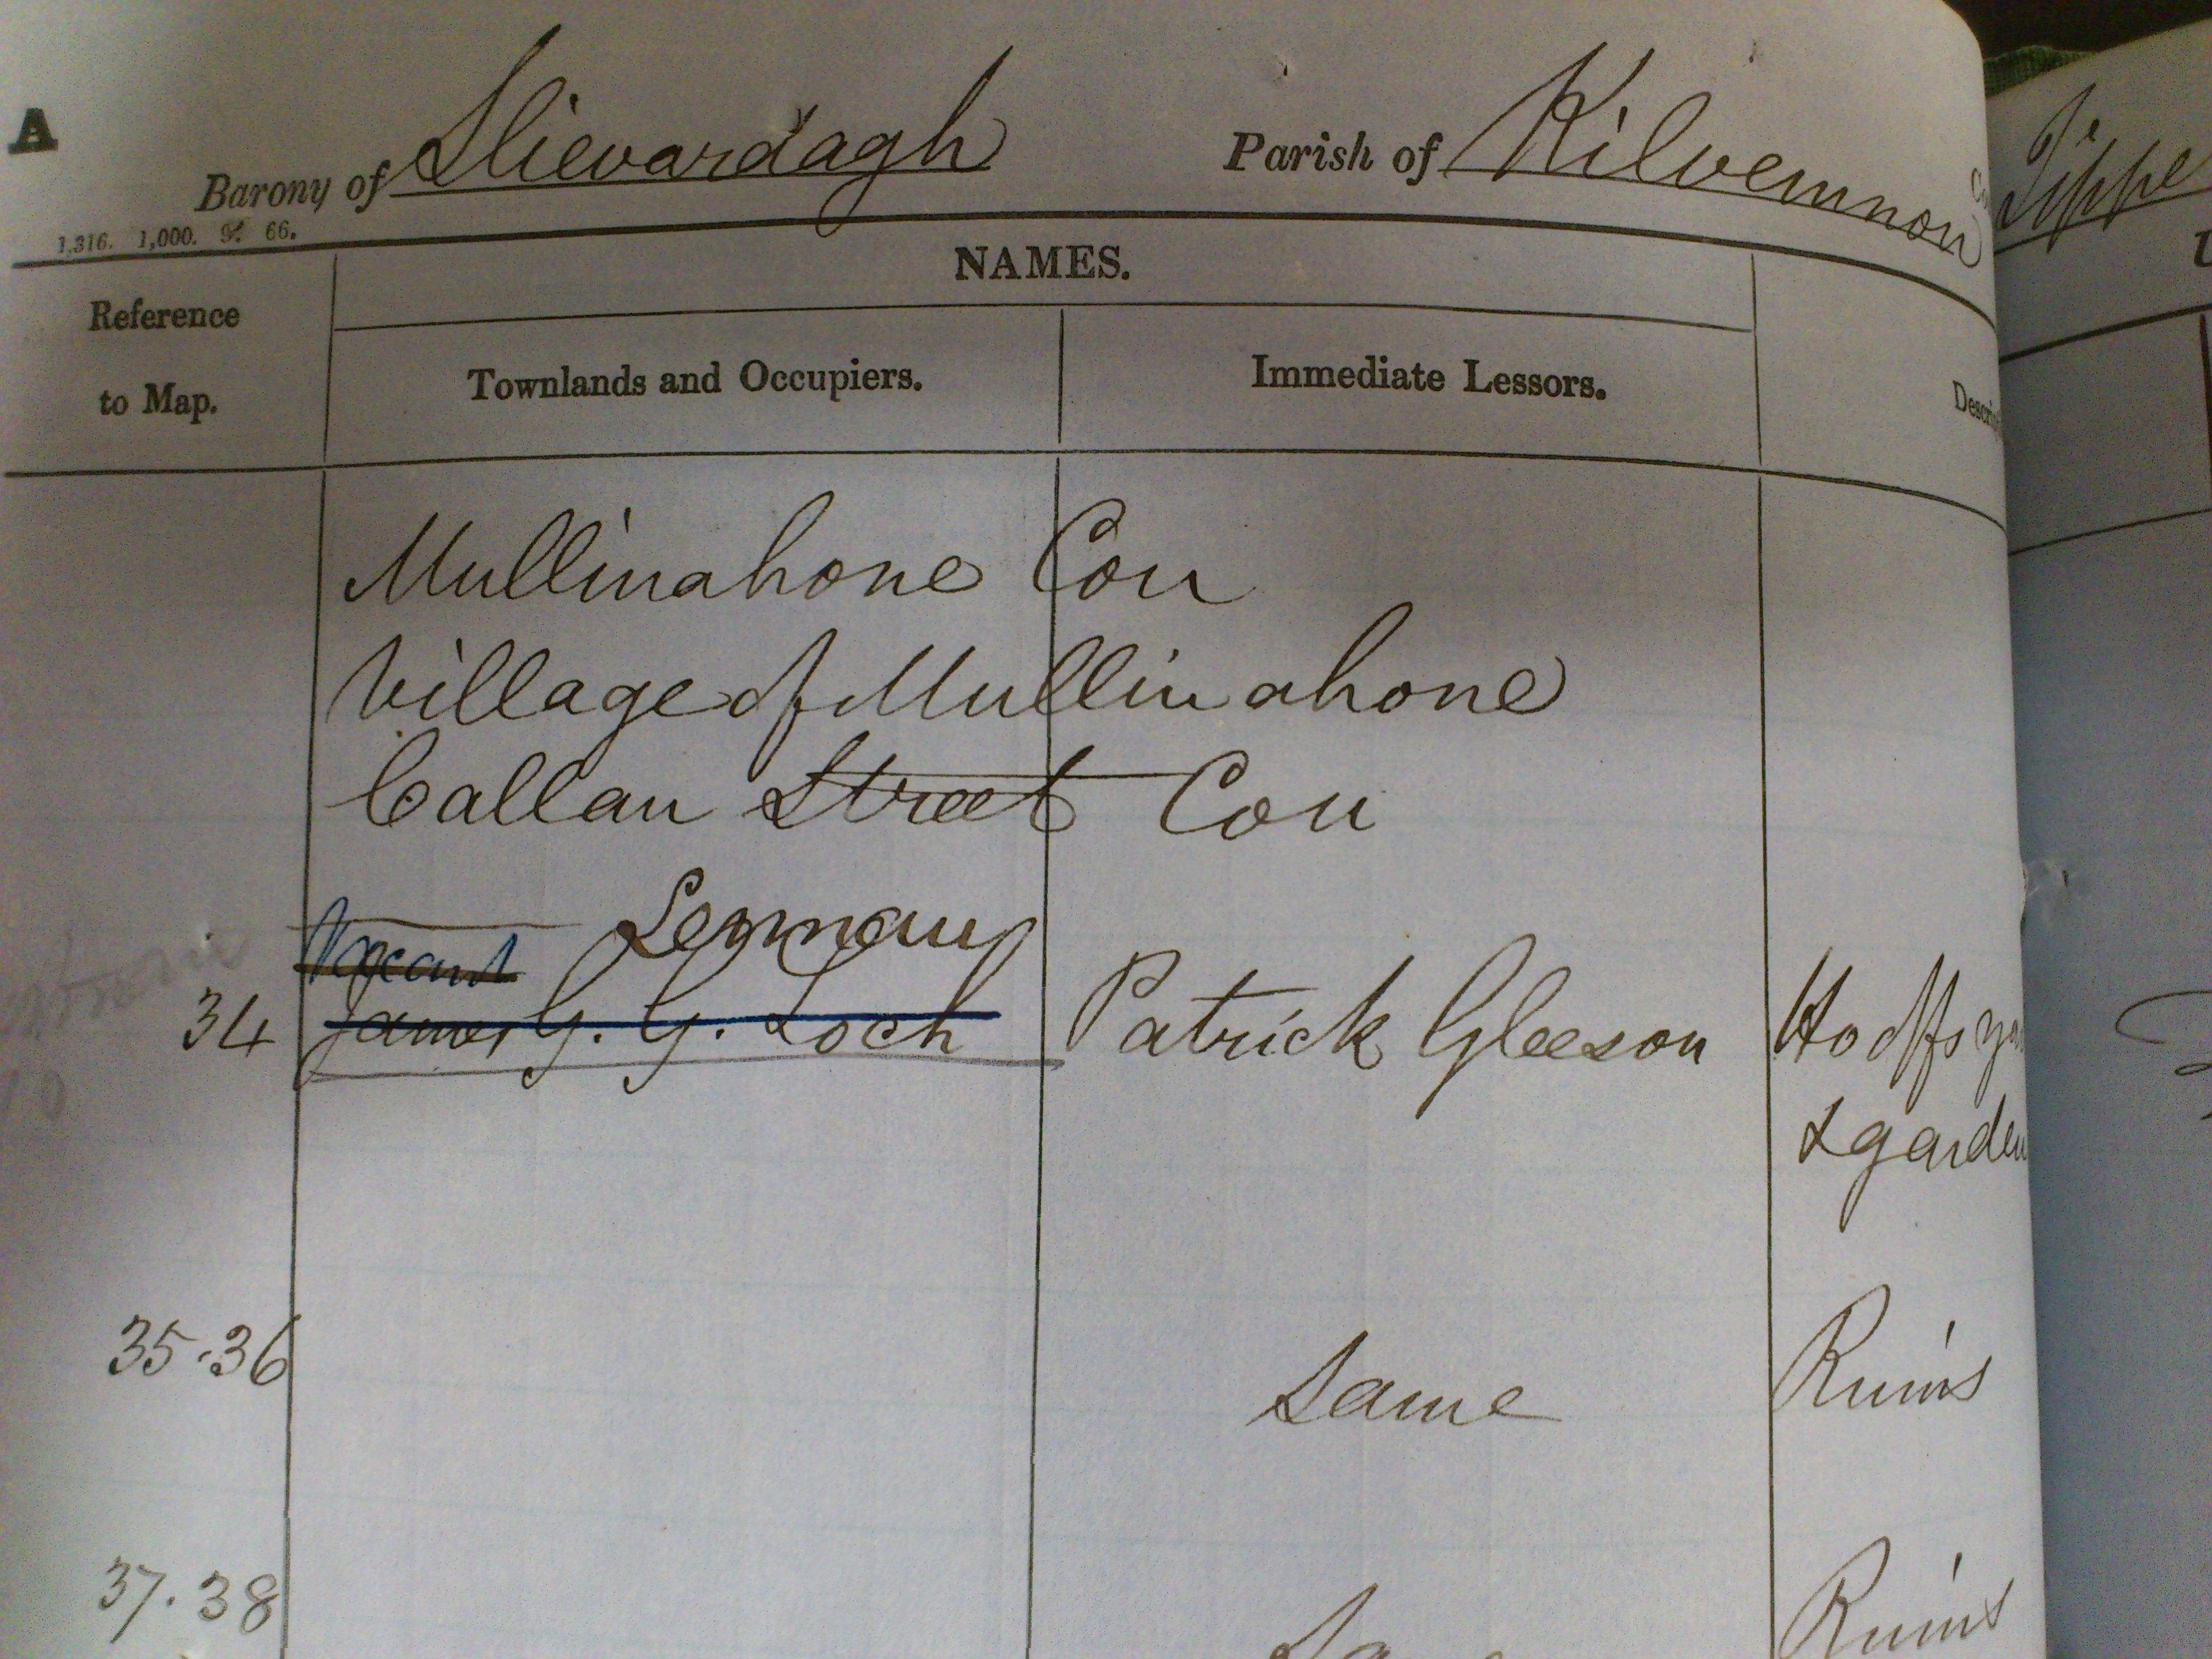 A
Barony of Slievardagh Parish of Kilvemnon Tippe
1,316. 1,000. 66.
NAMES.
Reference
to Map.
Townlands and Occupiers.
Immediate Lessors.
Mullinahone Con
Village of Mullinahone
Callan Street Con
Vacant
34 James G. G. Loch Patrick Gleeson Ho offs
& garden
35.36 Same Ruins
37.38 Ruins